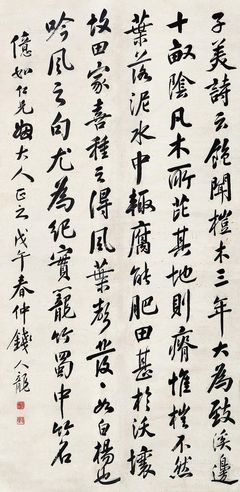 子美詩云飽聞榿木三年大為致溪邊
十畝陰凡木所芘其地則瘠惟榿不然
葉落泥水中輒腐能肥田甚於沃壤
故田家喜種之得風葉聲發發如白楊也
吟風之句尤為紀實籠竹蜀中竹名
億如仁兄大人正之戊午春仲錢人龍